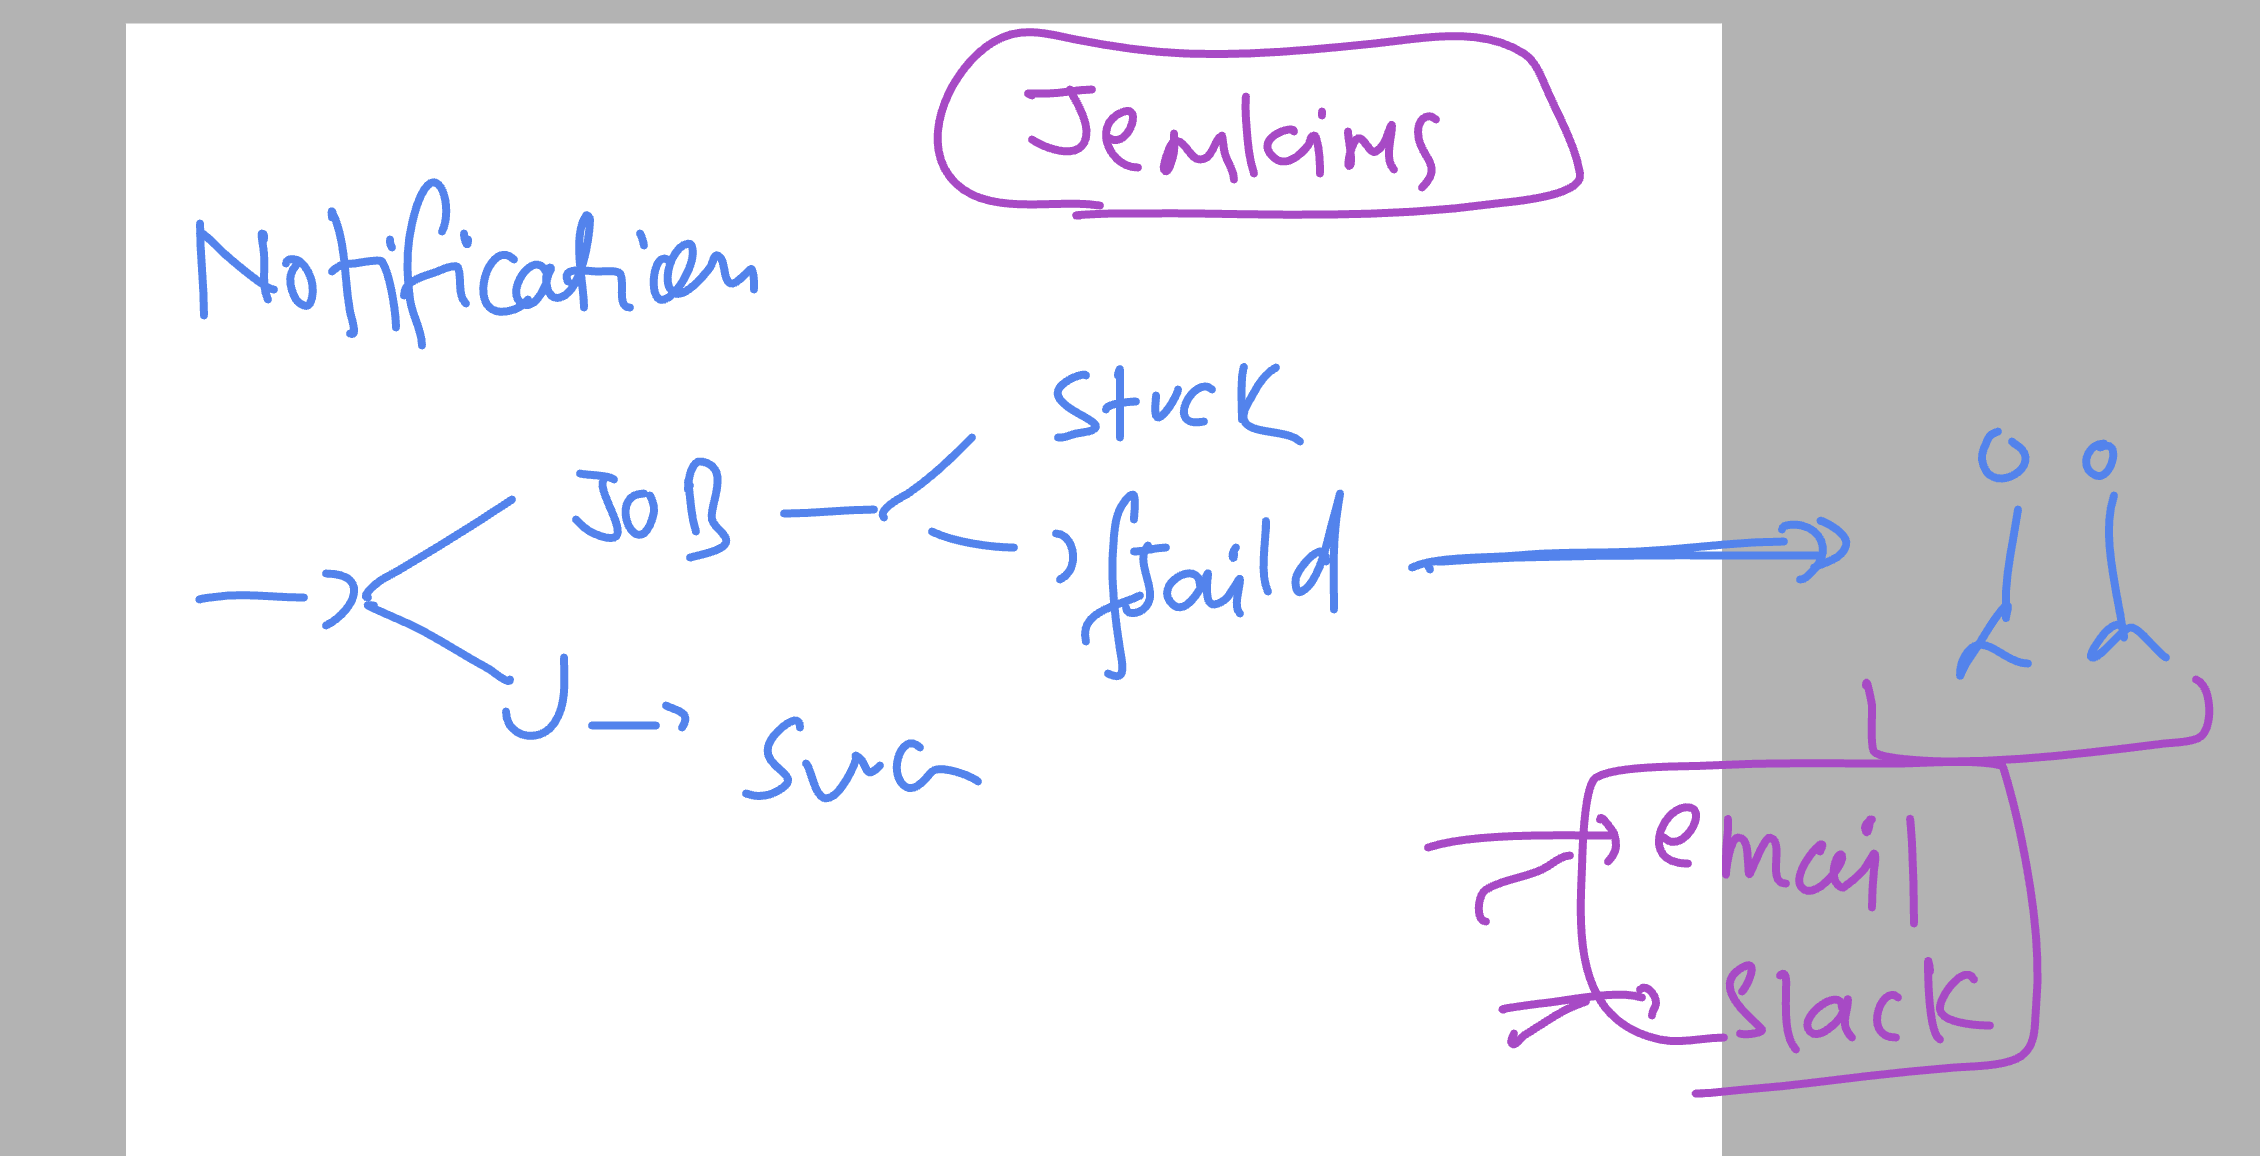 Jenkins
Notification
Stuck
JOB
faild
J
Succ
email
Slack